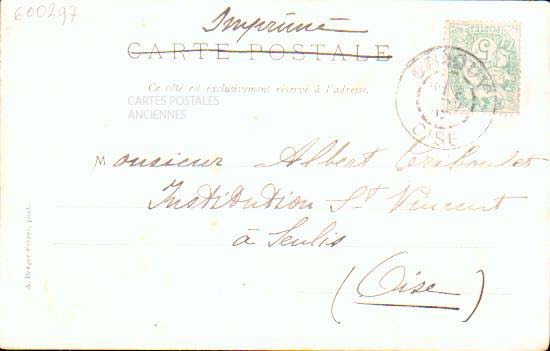 600297
Imprimé
CARTE POSTALE
Ce côté est exclusivement réservé à l'adresse.
CARTES POSTALES
ANCIENNES
Monsieur Albert
Institution St Vincent
à Senlis
(Oise)
OISE
5
A. Breger Frères, phot.